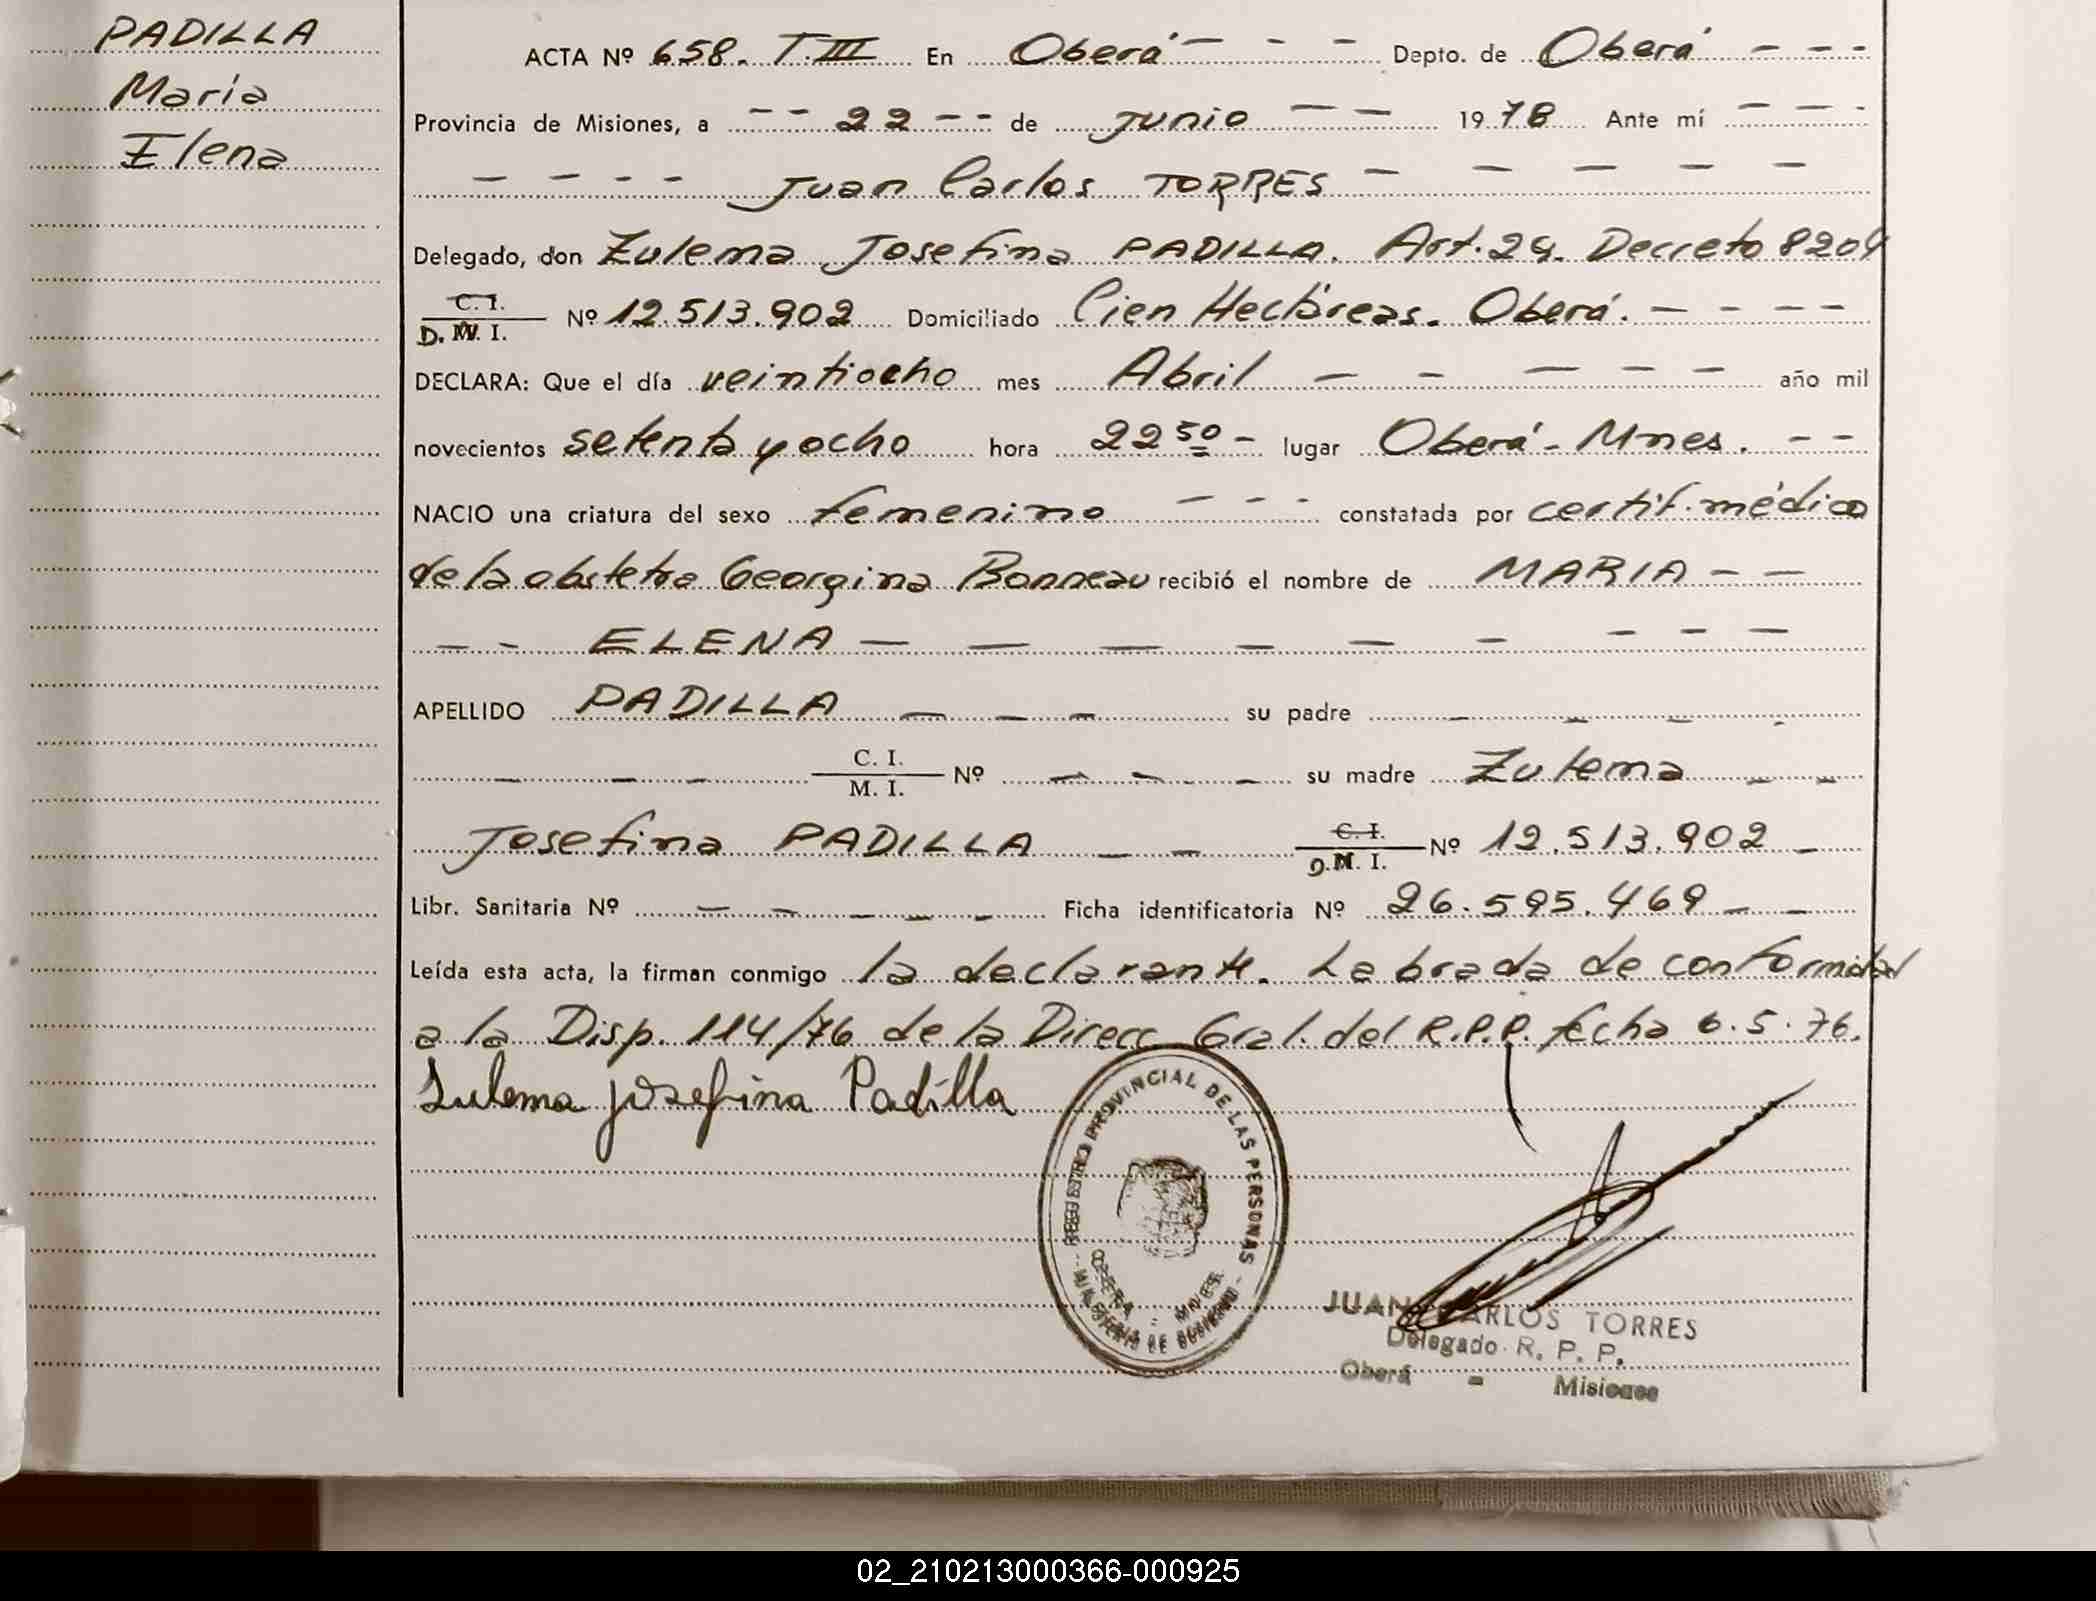 PADILLA
María
Elena
ACTA Nº 658. T.III En Oberá - - - Depto. de Oberá - - -
Provincia de Misiones, a - - 22 - - de junio - - 1978 Ante mí - - - -
- - - - Juan Carlos TORRES - - - - -
Delegado, don Zulema Josefina PADILLA. Art. 29. Decreto 8204
C. I.
D. N. I. Nº 12.513.902 Domiciliado Cien Hectáreas. Oberá. - - - -
DECLARA: Que el día veintiocho mes Abril - - - - - año mil
novecientos setenta y ocho hora 22 50 - lugar Oberá - Mnes. - -
NACIO una criatura del sexo femenino - - - constatada por certif. médico
de la obstetra Georgina Bonneau recibió el nombre de MARIA - -
- - ELENA - - - - - - - - -
APELLIDO PADILLA - - - su padre - - - -
- - - C. I.
M. I. Nº - - - su madre Zulema - -
Josefina PADILLA - - C. I.
D.N. I. Nº 12.513.902 -
Libr. Sanitaria Nº - - - - - Ficha identificatoria Nº 26.595.469 - -
Leída esta acta, la firman conmigo la declarante. Labrada de conformidad
a la Disp. 114/76 de la Direcc. Gral. del R.P.P. fecha 6.5.76.
Zulema Josefina Padilla
REGISTRO PROVINCIAL DE LAS PERSONAS
OBERA - MNES.
- MINISTERIO DE GOBIERNO -
JUAN CARLOS TORRES
Delegado R. P. P.
Oberá - Misiones
02_210213000366-000925